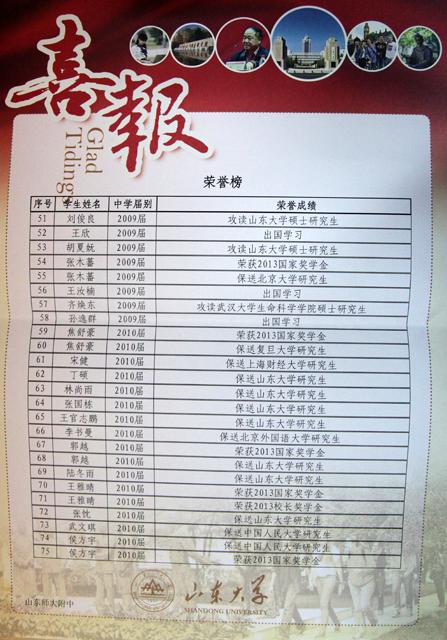 喜報
Glad
Tidings
荣誉榜
序号 学生姓名 中学届别 荣誉成绩
51 刘俊良 2009届 攻读山东大学硕士研究生
52 王欣 2009届 出国学习
53 胡夏妩 2009届 攻读山东大学硕士研究生
54 张木蕃 2009届 荣获2013国家奖学金
55 张木蕃 2009届 保送北京大学研究生
56 王汝楠 2009届 出国学习
57 齐焕东 2009届 攻读武汉大学生命科学学院硕士研究生
58 孙逸群 2009届 出国学习
59 焦舒豪 2010届 荣获2013国家奖学金
60 焦舒豪 2010届 保送复旦大学研究生
61 宋健 2010届 保送上海财经大学研究生
62 丁硕 2010届 保送山东大学研究生
63 林尚雨 2010届 保送山东大学研究生
64 张国栋 2010届 保送山东大学研究生
65 王官志鹏 2010届 保送山东大学研究生
66 李书曼 2010届 保送北京外国语大学研究生
67 郭越 2010届 荣获2013国家奖学金
68 郭越 2010届 保送山东大学研究生
69 陆冬雨 2010届 保送山东大学研究生
70 王雅晴 2010届 荣获2013国家奖学金
71 王雅晴 2010届 荣获2013校长奖学金
72 张忱 2010届 保送山东大学研究生
73 武文琪 2010届 保送中国人民大学研究生
74 侯方宇 2010届 保送中国人民大学研究生
75 侯方宇 2010届 荣获2013国家奖学金
山东大学
SHANDONG UNIVERSITY
山东师大附中